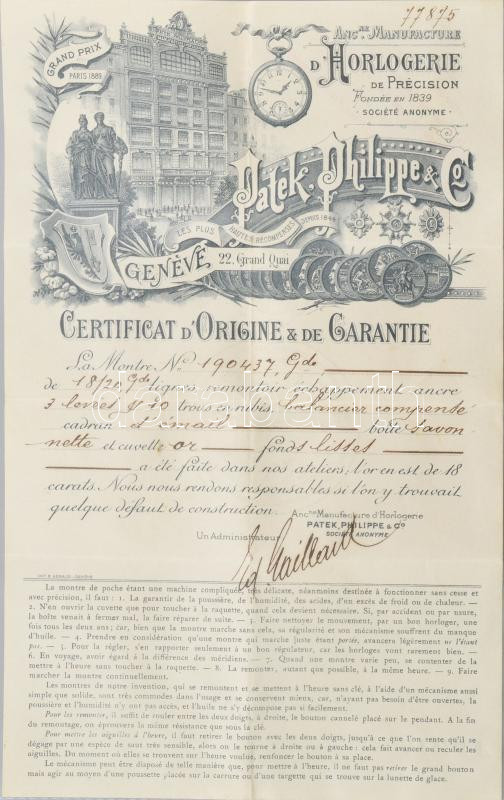 77875
GRAND PRIX
PARIS 1889
ANC.NE MANUFACTURE
D'HORLOGERIE
DE PRÉCISION
FONDÉE EN 1839
SOCIÉTÉ ANONYME
Patek, Philippe & Co
LES PLUS HAUTES RÉCOMPENSES DEPUIS 1844
GENÈVE 22. Grand Quai
CERTIFICAT D'ORIGINE & DE GARANTIE
La Montre No 190437, Gdo
de 18/20 Gdo lignes, remontoir échappement ancre
levées 19 trous en rubis, balancier compensé
cadran émail boîte savon
nette et cuvette or fonds lisses
a été faite dans nos ateliers; l'or en est de 18
carats. Nous nous rendons responsables si l'on y trouvait
quelque défaut de construction.
Anc.ne Manufacture d'Horlogerie
PATEK, PHILIPPE & Co
SOCIÉTÉ ANONYME
Un Administrateur
La montre de poche étant une machine compliquée, très délicate, néanmoins destinée à fonctionner sans cesse et
avec précision, il faut : 1. La garantir de la poussière, de l'humidité, des acides, d'un excès de froid ou de chaleur. —
2. N'en ouvrir la cuvette que pour toucher à la raquette, quand cela devient nécessaire. Si, par accident ou par usure,
la boîte venait à fermer mal, la faire réparer de suite. — 3. Faire nettoyer le mouvement, par un bon horloger, une
fois tous les deux ans; car, bien que la montre marche sans cela, sa régularité et son mécanisme souffrent du manque
d'huile. — 4. Prendre en considération qu'une montre qui marche juste étant portée, avancera légèrement en l'étant
pas. — 5. Pour la régler, s'en rapporter seulement à un bon régulateur, car les horloges vont rarement bien. —
6. En voyage, avoir égard à la différence des méridiens. — 7. Quand une montre varie peu, se contenter de la
mettre à l'heure sans toucher à la raquette. — 8. La remonter, autant que possible, à la même heure. — 9. Faire
marcher la montre continuellement.
Les montres de notre invention, qui se remontent et se mettent à l'heure sans clé, à l'aide d'un mécanisme aussi
simple que solide, sont très commodes dans l'usage et se conservent mieux, car, n'ayant pas besoin d'être ouvertes, la
poussière et l'humidité n'y ont pas accès, et l'huile ne s'y décompose pas si facilement.
Pour les remonter, il suffit de rouler entre les deux doigts, à droite, le bouton cannelé placé sur le pendant. A la fin
du remontage, on éprouvera la même résistance que sous la clé.
Pour mettre les aiguilles à l'heure, il faut retirer le bouton avec les deux doigts, jusqu'à ce que l'on sente qu'il se
dégage par une espèce de saut très sensible, alors on le tourne à droite ou à gauche : cela fait avancer ou reculer les
aiguilles. Du moment où elles se trouvent sur l'heure voulue, renfoncer le bouton à sa place.
Le mécanisme peut être disposé de telle manière que, pour mettre à l'heure, il ne faut pas retirer le grand bouton
mais agir au moyen d'une poussette placée sur la carrure ou d'une targette qui se trouve sur la lunette de glace.